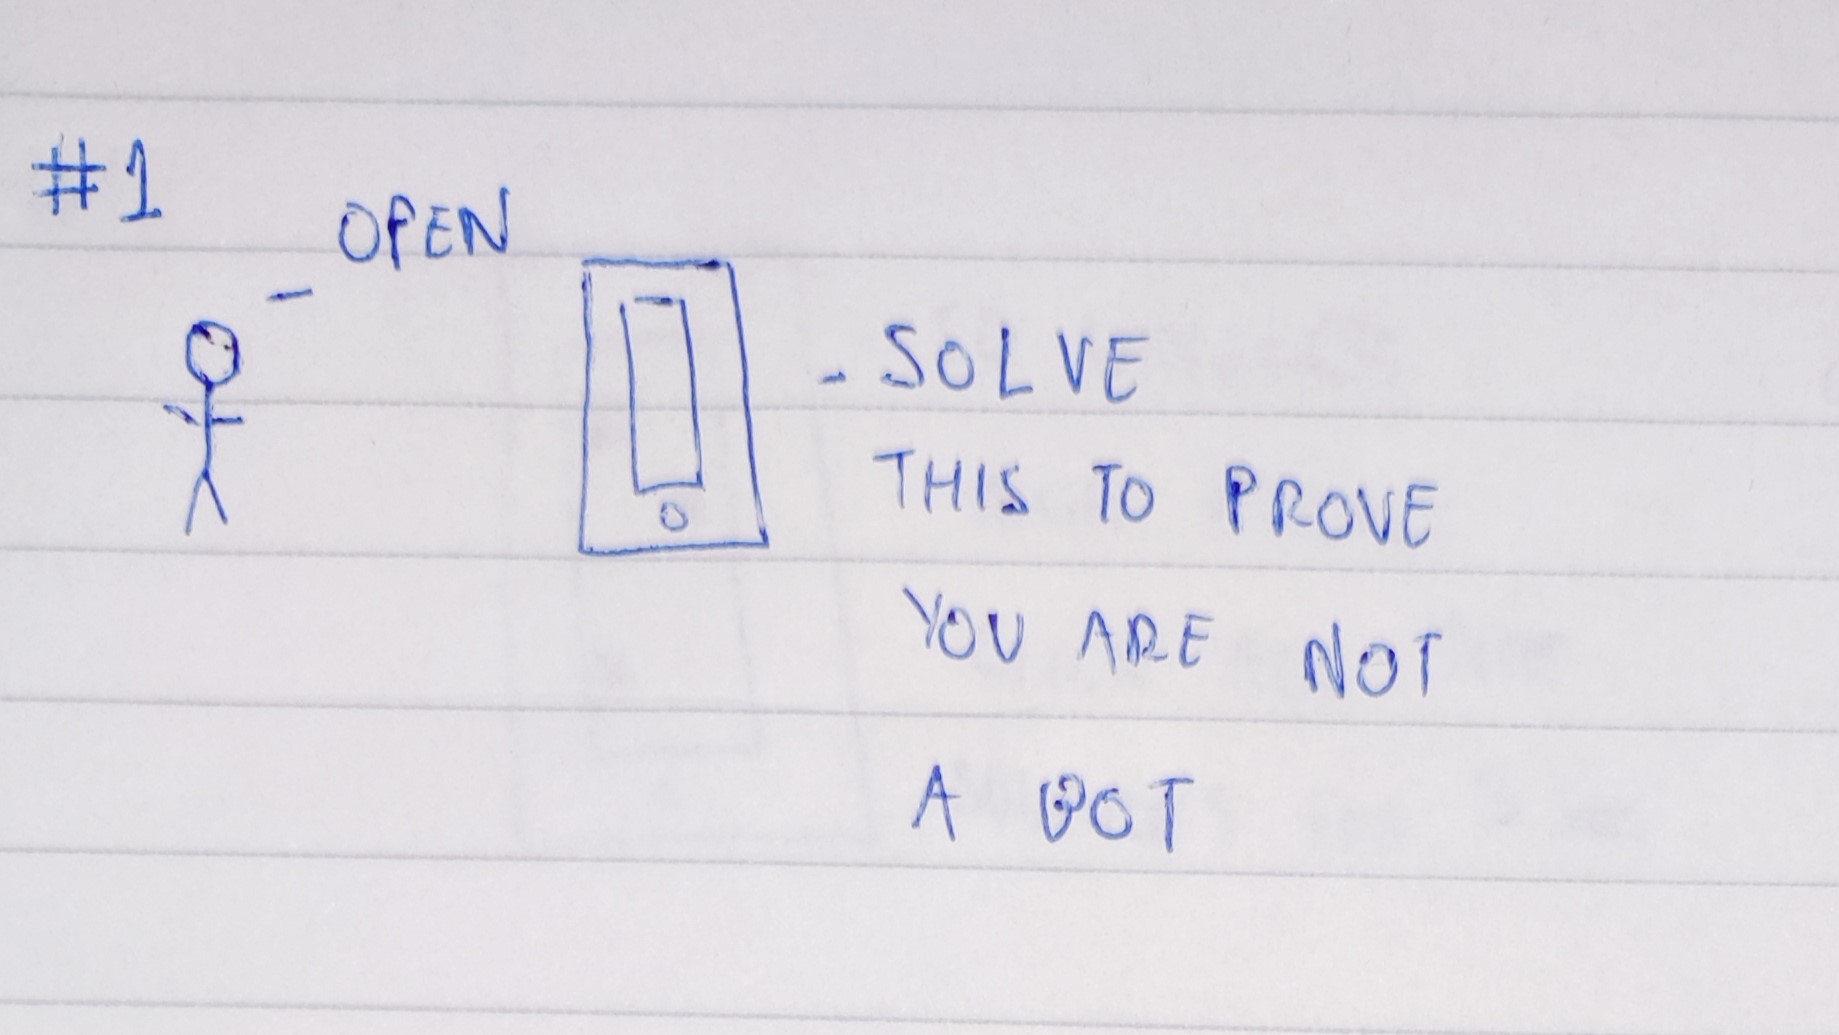 #1
- OPEN
- SOLVE
THIS TO PROVE
YOU ARE NOT
A BOT